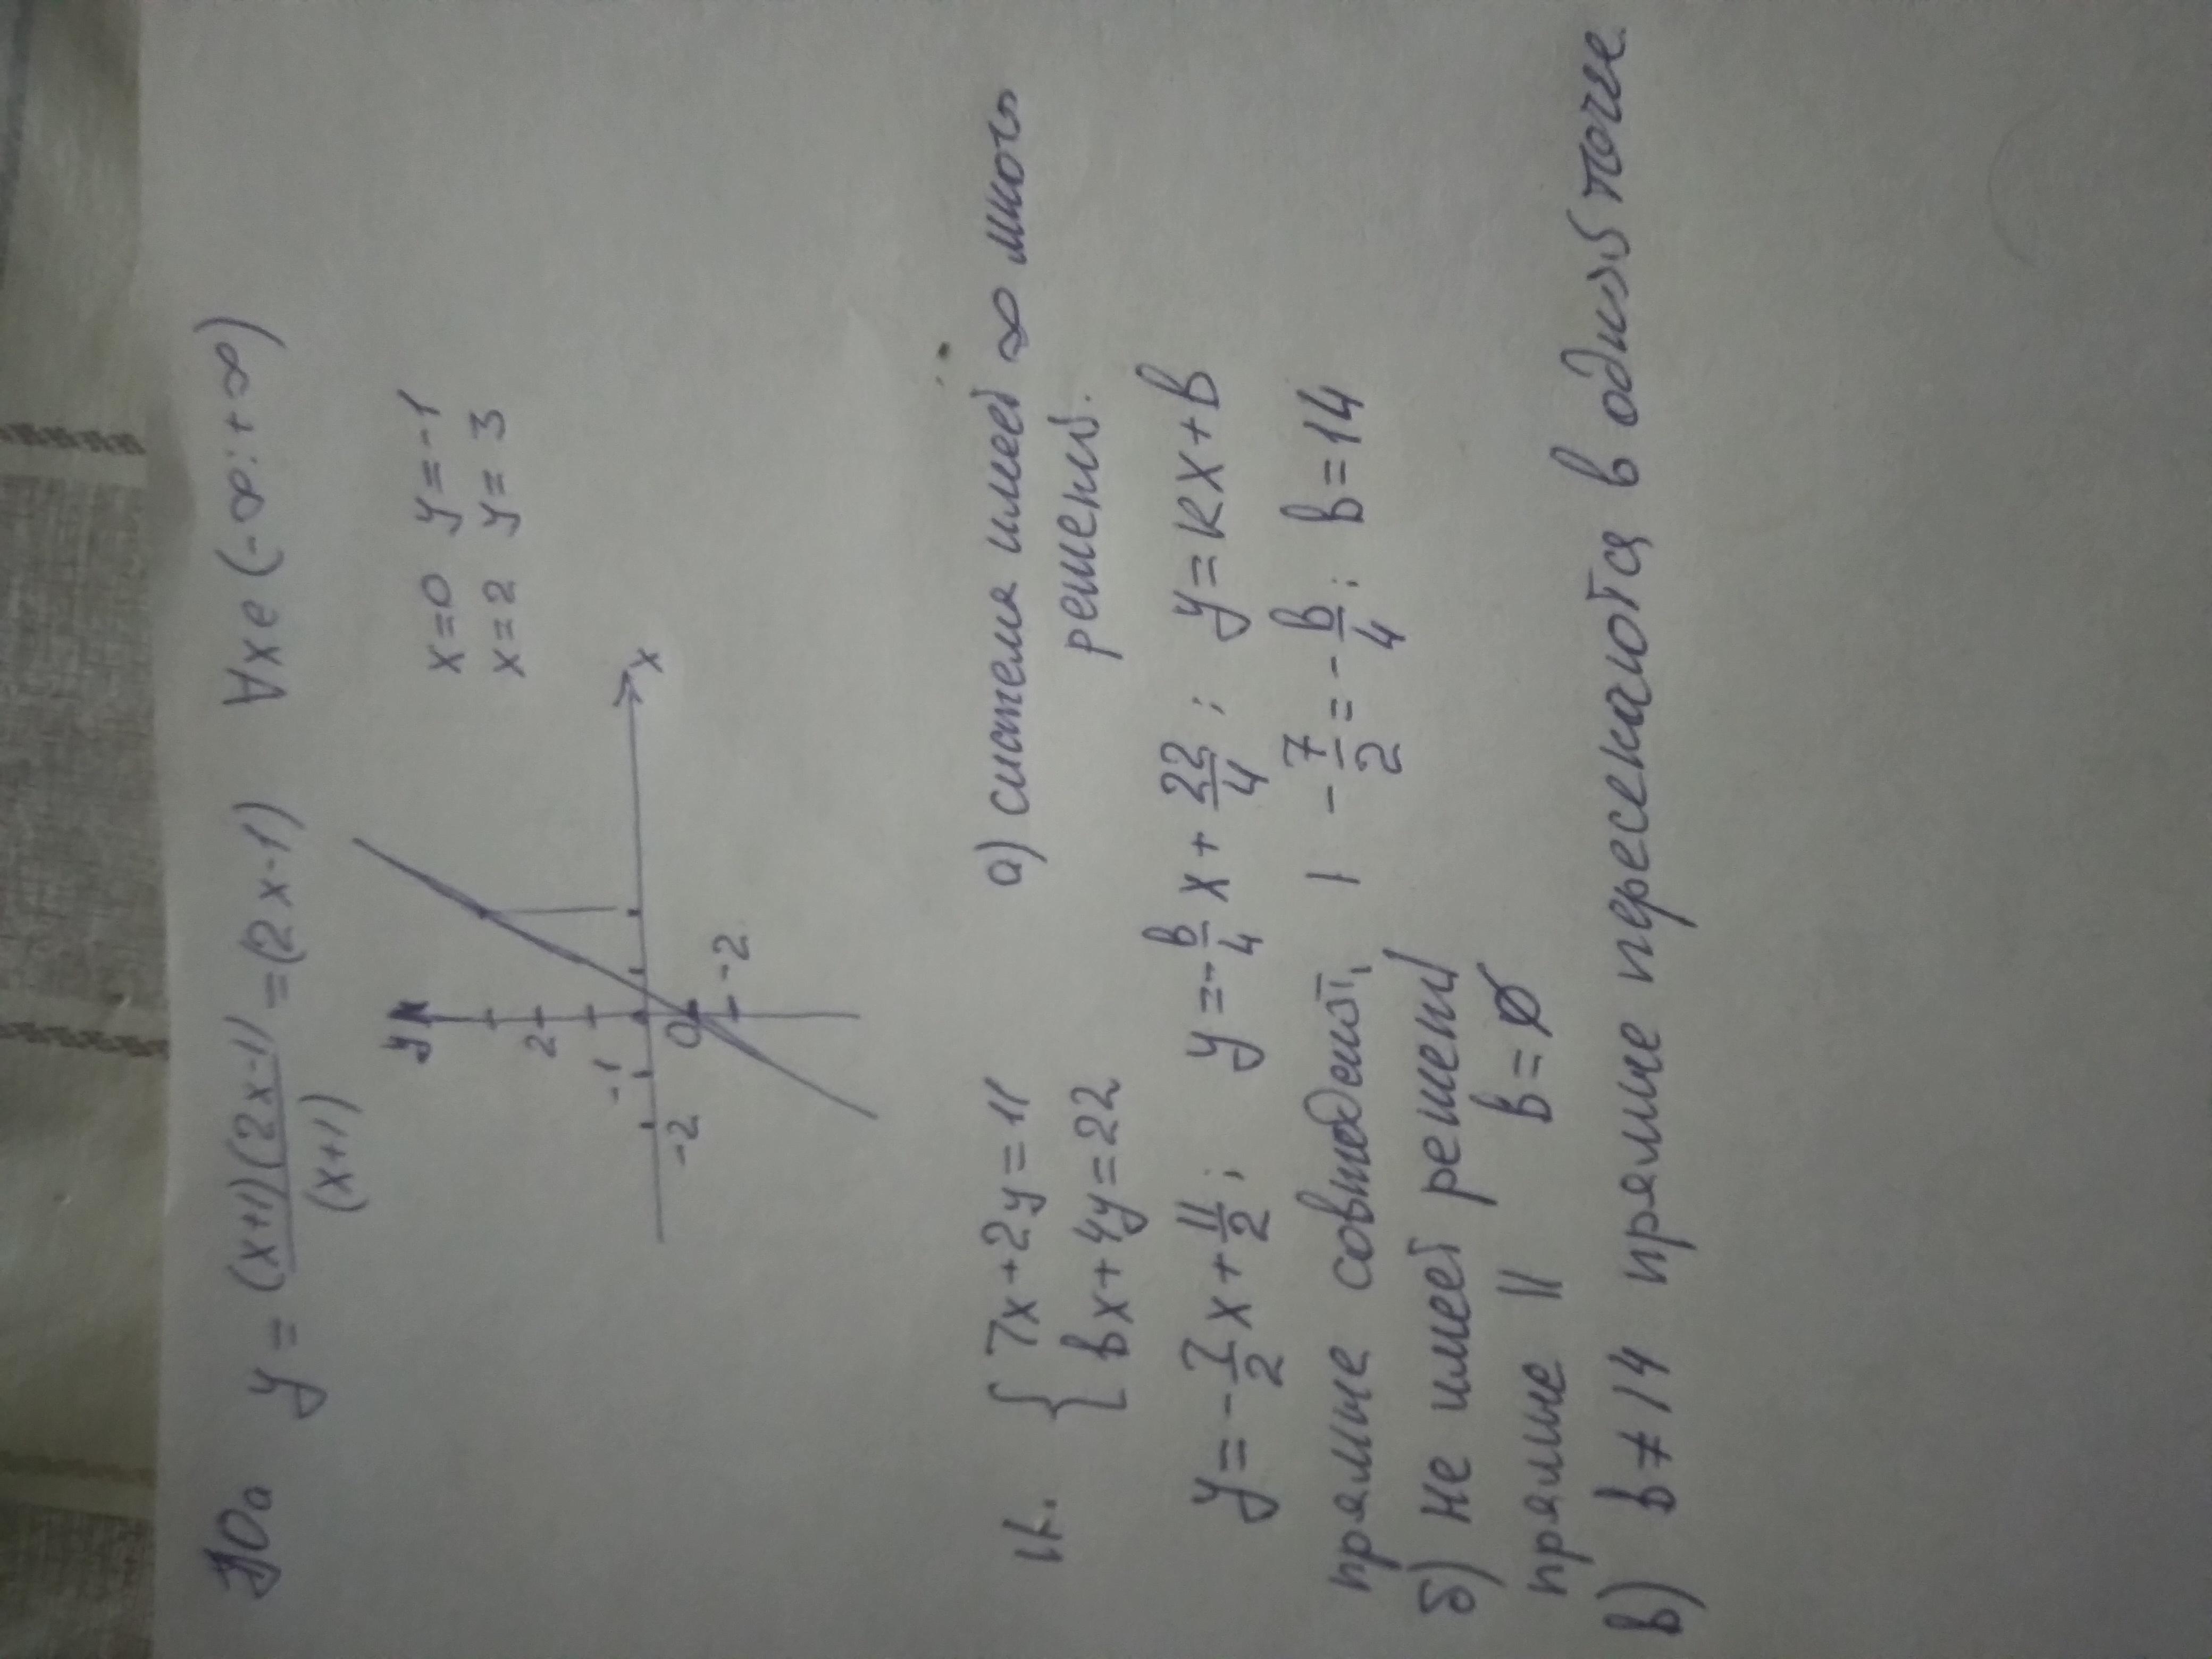 10а y = (x+1)(2x-1)/(x+1) = (2x-1) ∀x∈(-∞:+∞)
x=0 y=-1
x=2 y=3
y
2
-1
-2
0
-2
x
11. {7x+2y=11 а) система имеет ∞ много
{вx+4y=22 решений.
y=-7/2x+11/2; y=-в/4x+22/4; y=кx+в
прямые совпадают, | -7/2=-в/4; в=14
б) не имеет решений
прямые || в=∅
в) в≠14 прямые пересекаются в одной точке.